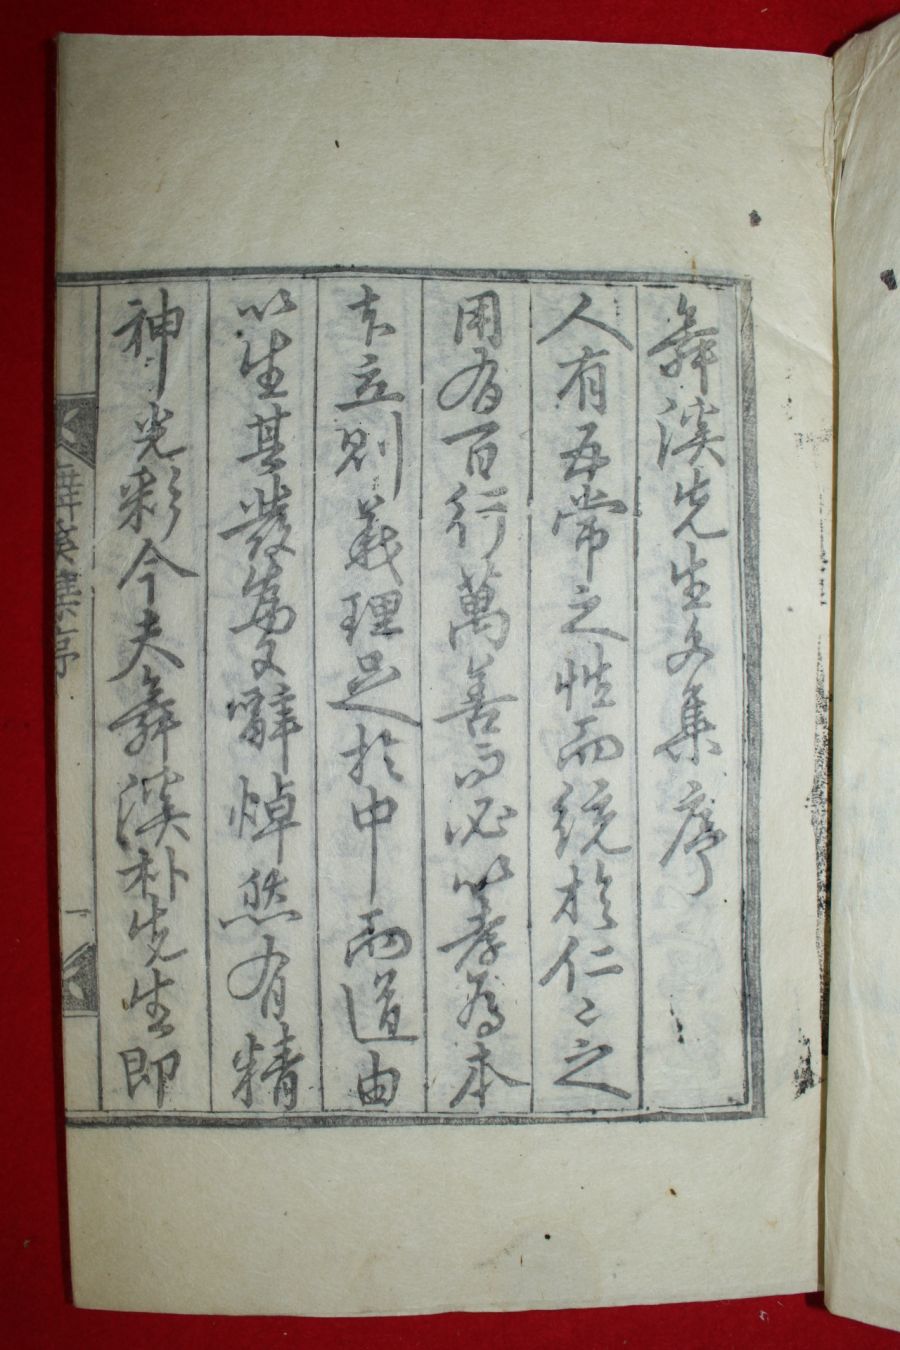 舞溪先生文集序
人有五常之性而統於仁〻之
用有百行萬善而必以孝為本
本立則義理足於中而道由
以生其發為文辭焯然有精
神光彩今夫舞溪朴先生即
舞溪集序
一